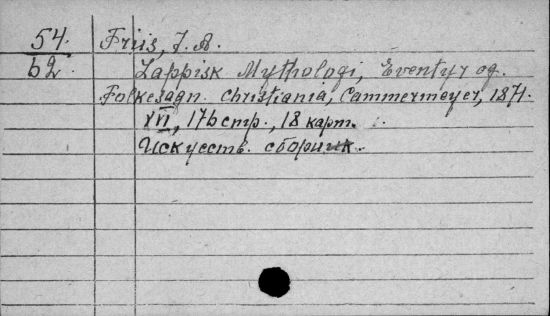 54.
62.
Friis, J. A.
Lappisk Mythologi, Eventyr og
Folkesagn. Christiania, Cammermeyer, 1871.
XVI, 176 стр., 18 карт.
Искусств. сборник.